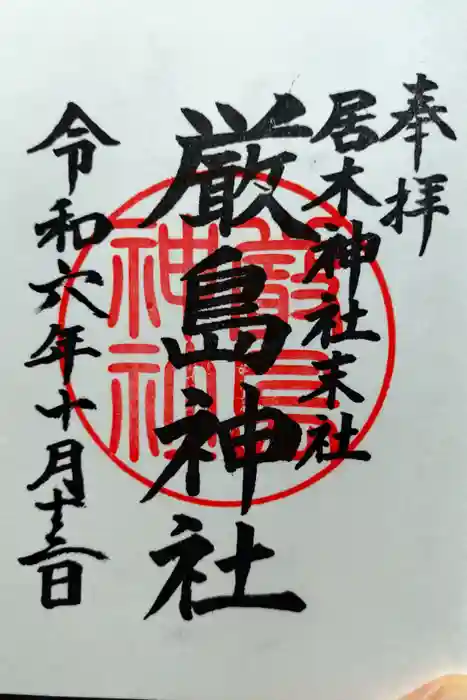 奉拝
居木神社末社
厳島神社
令和六年十月十三日
嚴島
神社